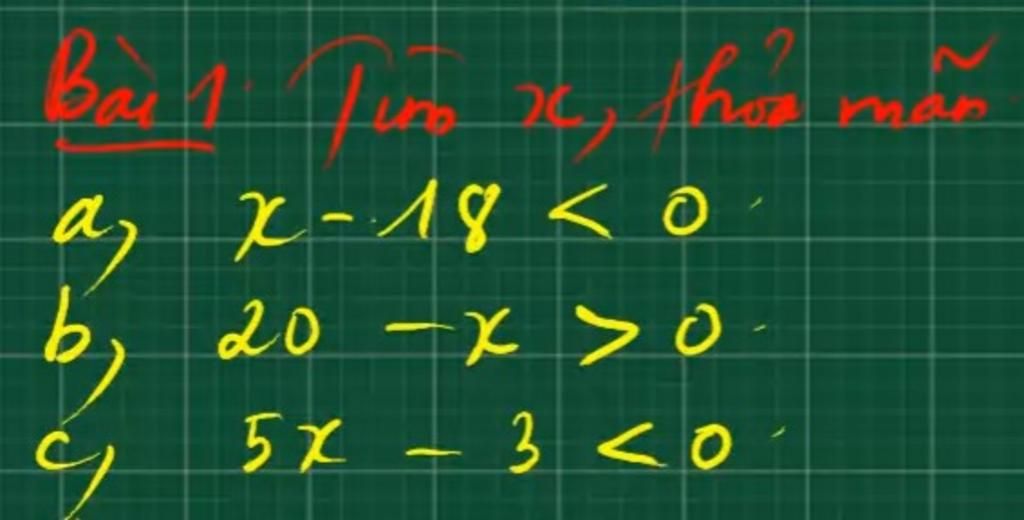 Bài 1. Tìm x, thỏa mãn
a, x - 18 < 0.
b, 20 - x > 0.
c, 5x - 3 < 0.